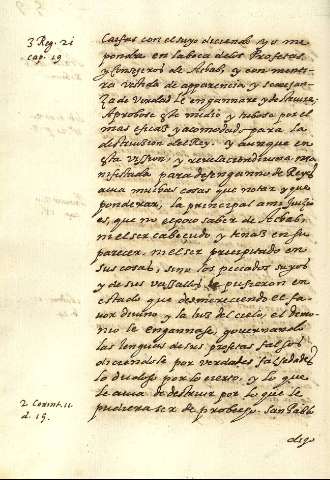 3 Reg. 21
cap. 19
Caesas con el suyo diciendo yo me
pondre en la boca delos Profetas
y Consejeros de Achab, y con menti-
ra vestida de apparencia y semejan-
za de verdad le engannare y destruire
Aprobose este medio y tubose por el
mas eficas y acomodado para la
destruision del Rey. y aunque en
esta vission, y revelacion divina ma-
nifestada para desenganno de Reyes
avia muchas cosas que notar y que
ponderar, la principal a mi juizio
es, que no el poco saber de Achab,
ni el ser cabecudo y tenas en su
parecer, ni el ser precipitado en
sus cosas, sino los peccados suyos
y de sus vasallos le pusieron en
estado que desmereciendo el fa-
uor diuino y la luz del cielo, el demo-
nio le engannase, governando
las lenguas de sus profetas falsos
diciendole por verdades falsedades
lo dudoso por lo cierto, y lo que
le avia de destruir por lo que le
pudiera ser de probecho. San Pablo
2 Corint. 11.
d. 15.
digo